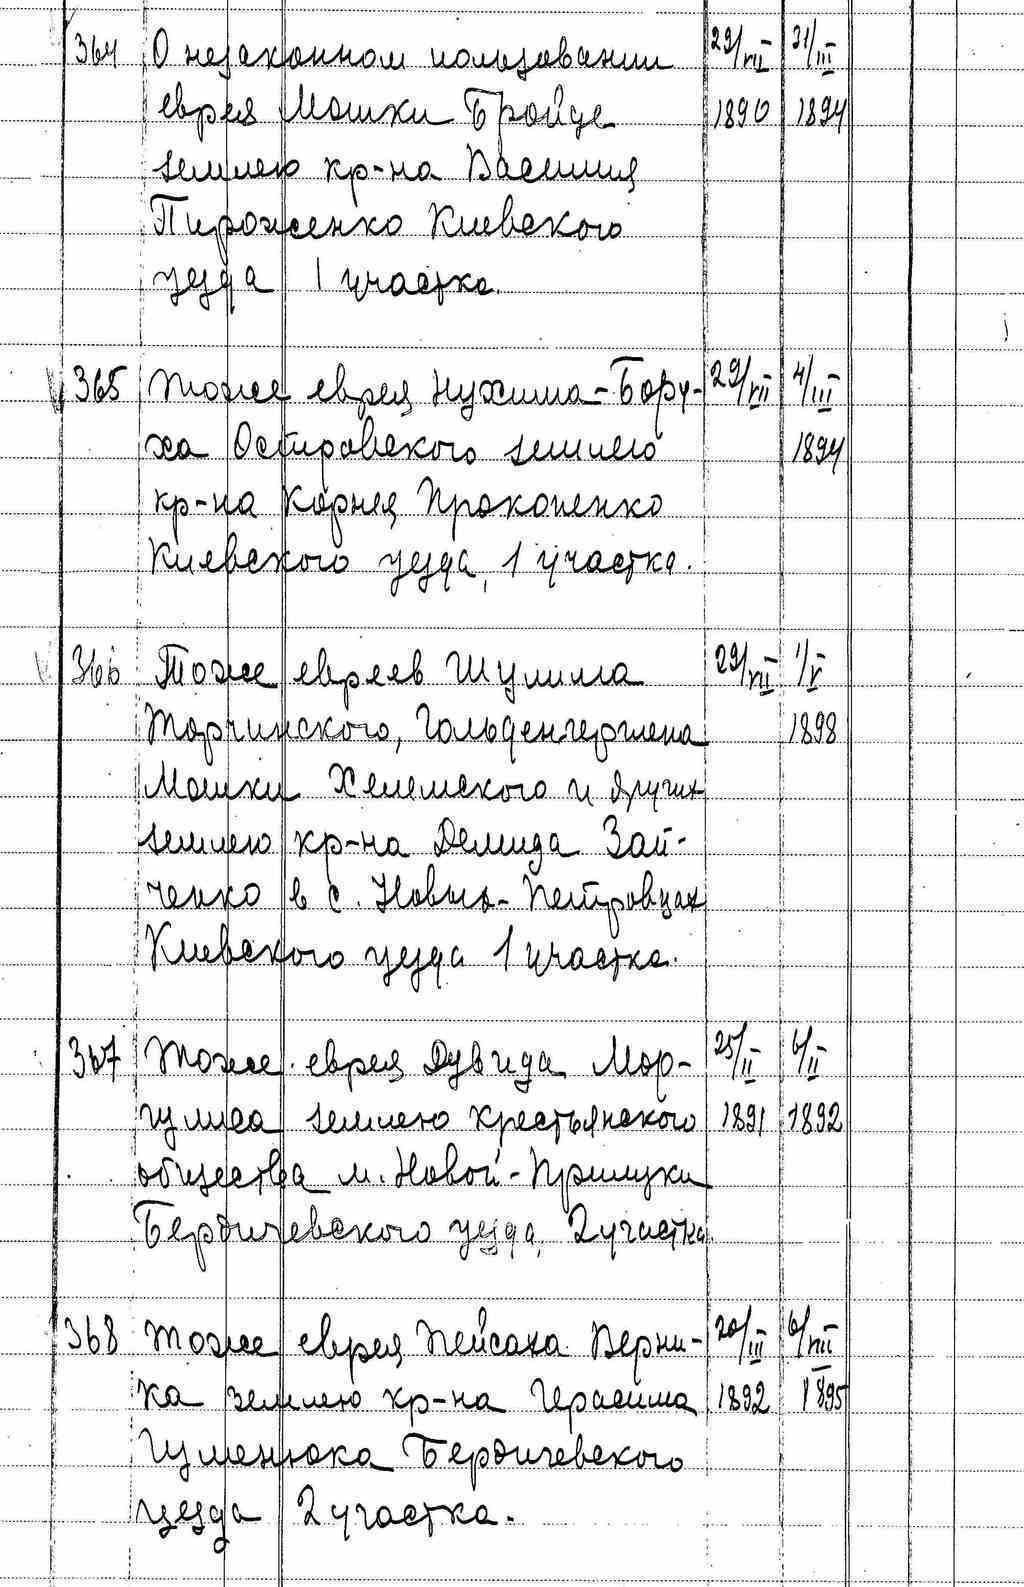 364 О незаконном пользовании 29/VII 31/III
еврея Мошки Бройде 1890 1894
землею кр-на Василия
Пироженко Киевского
уезда 1 участка.
365 Тоже еврея Нухима-Бору- 29/VII 4/III
ха Островского землею 1894
кр-на Корнея Прокопенко
Киевского уезда, 1 участка.
366 Тоже евреев Шулима 29/VII 1/V
Торчинского, Гольденгершена 1898
Мошки Хелемского и других
землею кр-на Демида Зай-
ченко в с. Новых-Петровцах
Киевского уезда 1 участка.
367 Тоже еврея Дувида Мар- 25/II 6/II
гулиса землею крестьянского 1891 1892
общества м. Новой-Прилуки
Бердичевского уезда, 2 участка.
368 Тоже еврея Пейсаха Верни- 20/III 6/VII
ка землею кр-на Герасима 1892 1895
Гуменюка Бердичевского
уезда 2 участка.